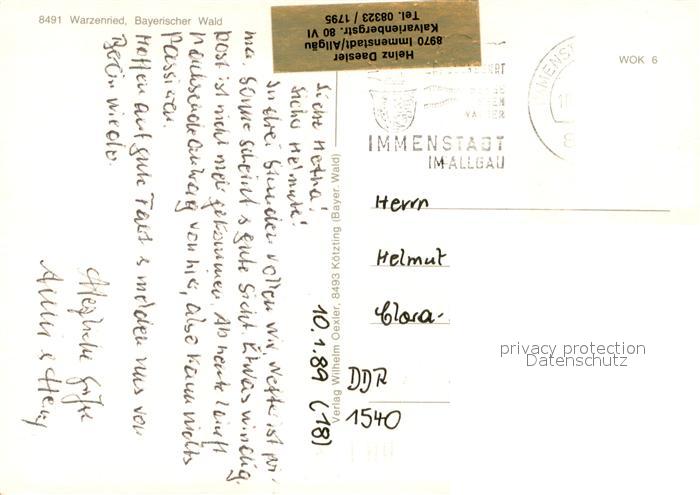 8491 Warzenried, Bayerischer Wald
Heinz Daesler
8970 Immenstadt/Allgäu
Kalvarienbergstr. 80 VI
Tel. 08323 / 1795
IMMENSTADT
IM ALLGÄU
IMMENST
WOK 6
10.1.89 (18)
Liebe Hertha!
Lieber Helmut!
In drei Stunden wollen wir, Wetter ist pri-
ma, Sonne scheint & gute Sicht. Etwas windig.
Post ist nicht mehr gekommen. Ab heute läuft
Nachsendeantrag von hier, also kann nichts
passieren.
Hoffen auf gute Fahrt & melden uns von
Berlin wieder.
Herzliche Grüße
Anni & Heinz
Verlag Wilhelm Oexler, 8493 Kötzting (Bayer. Wald)
Herrn
Helmut
Clara-
DDR
1540
privacy protection
Datenschutz